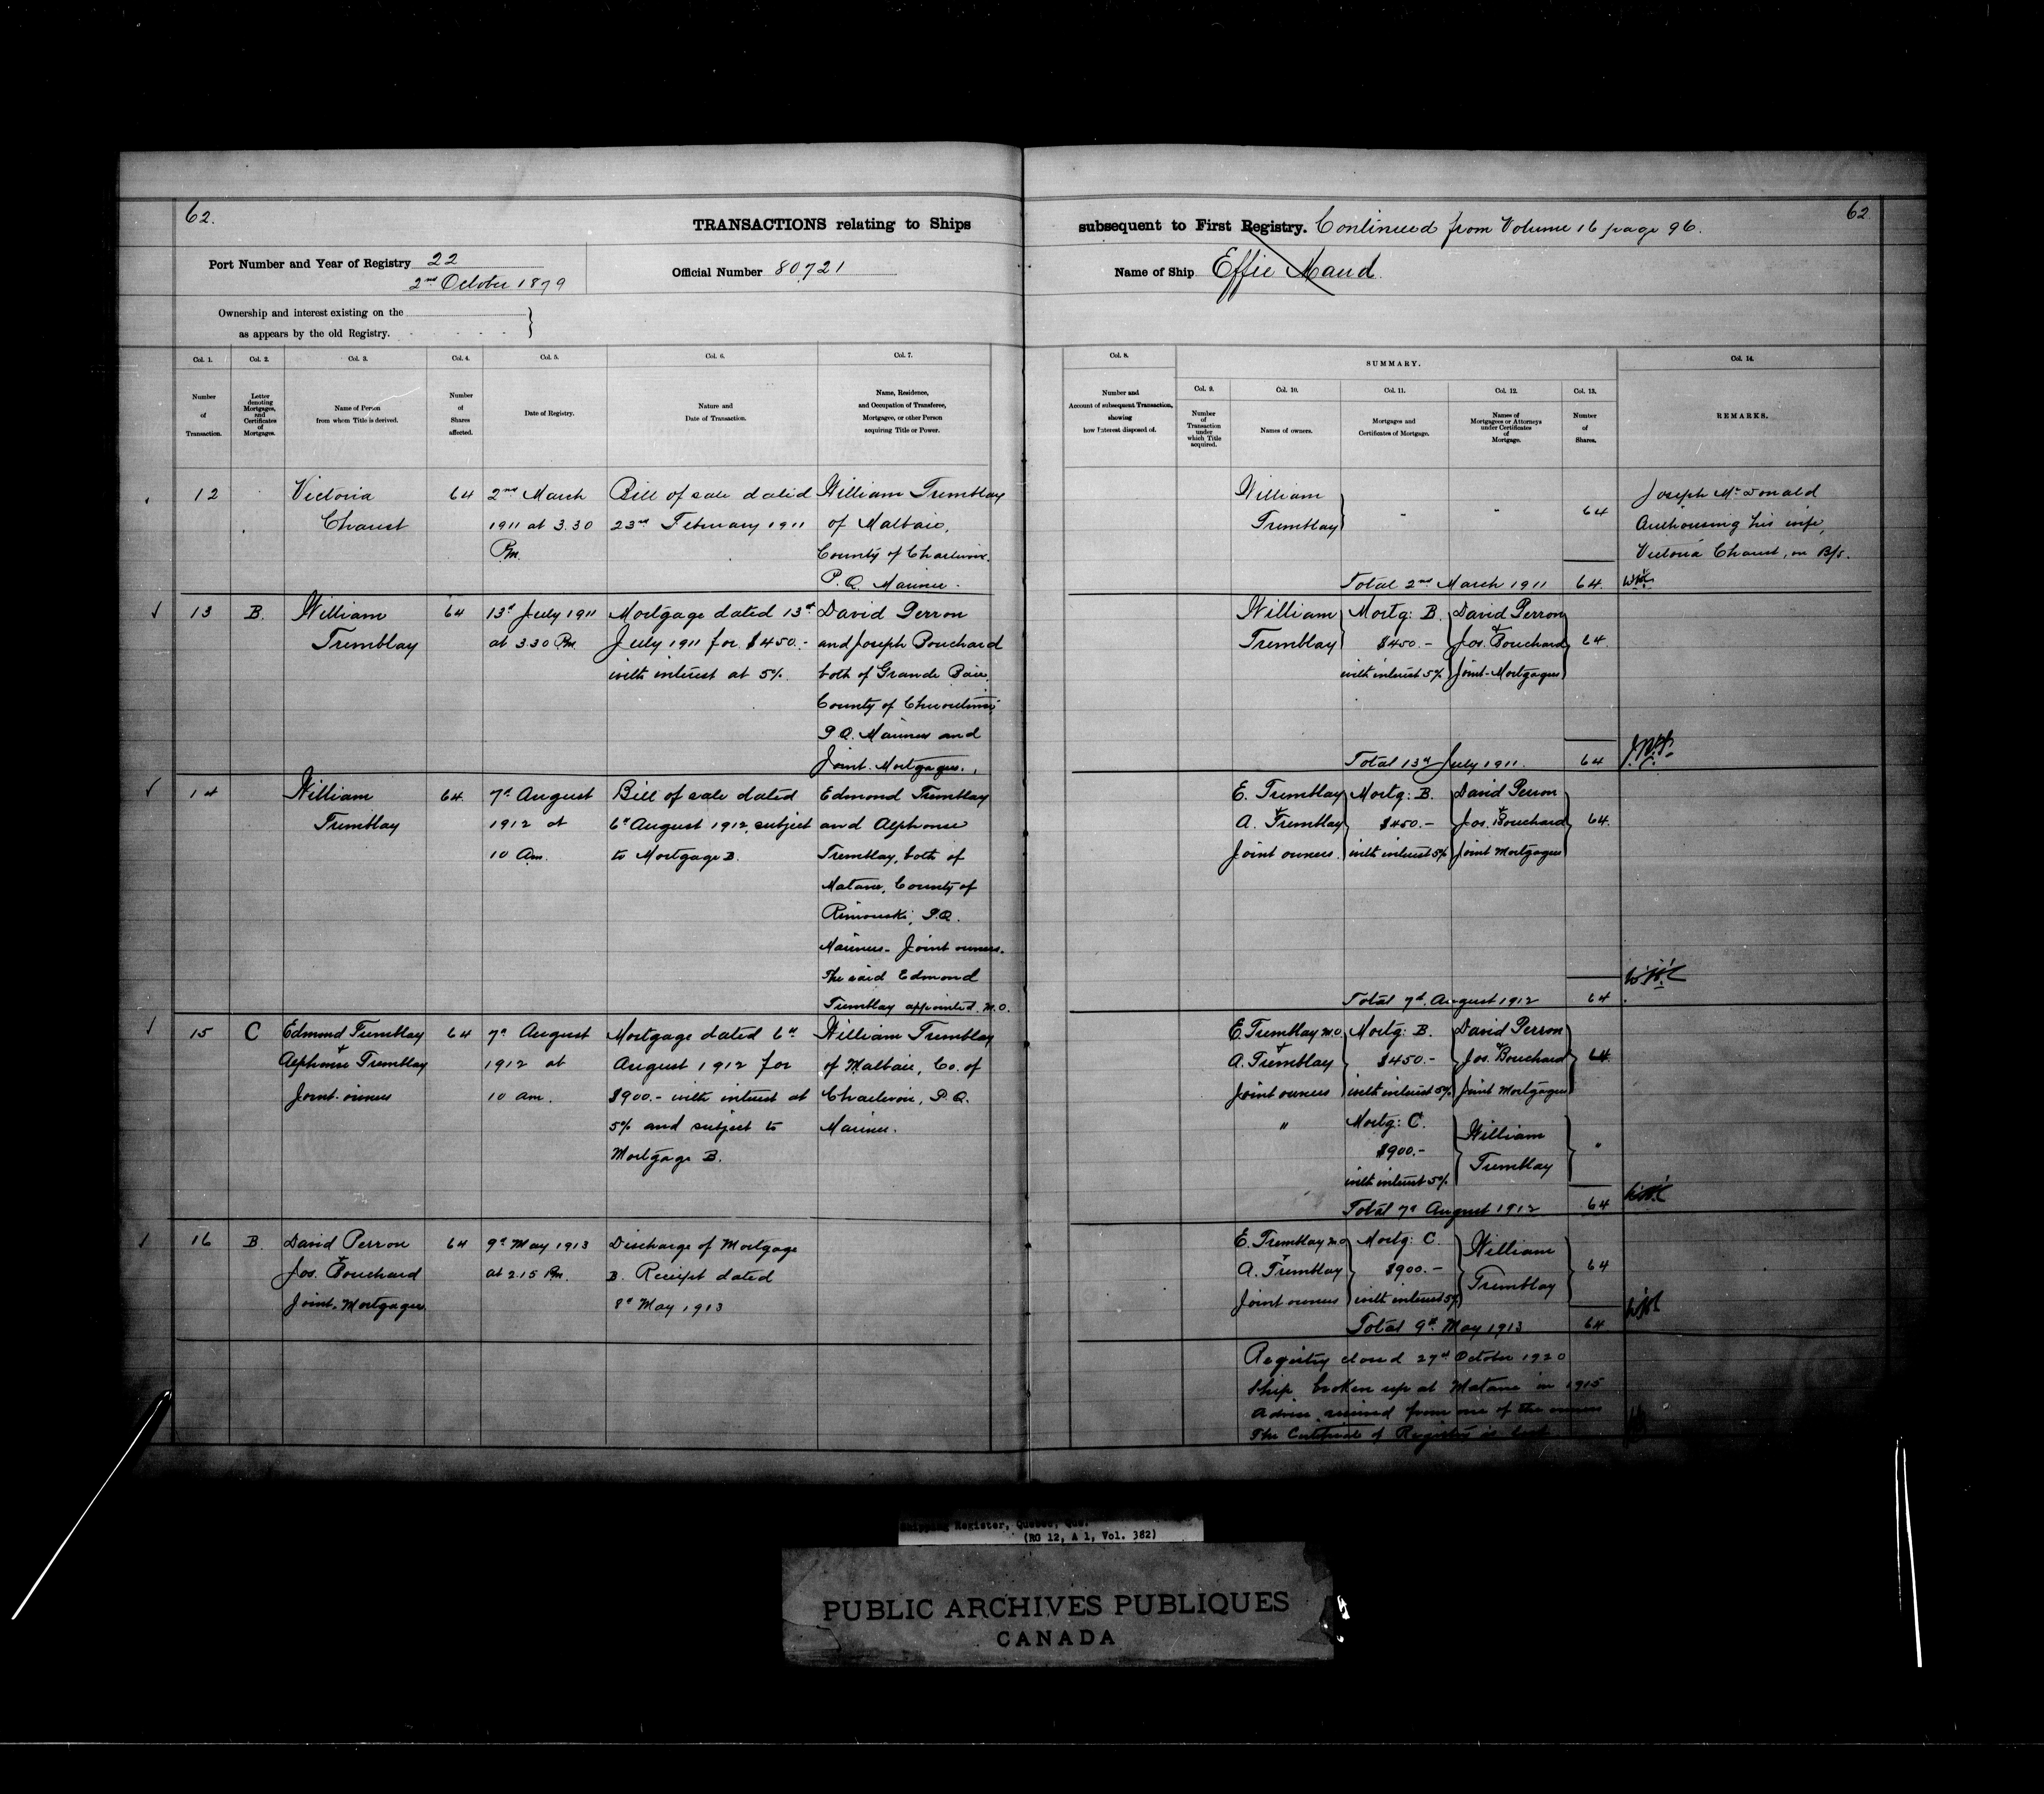 62.
TRANSACTIONS relating to Ships
subsequent to First Registry. Continued from Volume 16 page 96.
62
Port Number and Year of Registry 22
2nd October 1879
Official Number 80721
Name of Ship Effie Maud.
Ownership and interest existing on the
as appears by the old Registry.
Col. 1.
Number
of
Transaction.
Col. 2.
Letter
denoting
Mortgages,
and
Certificates
of
Mortgages.
Col. 3.
Name of Person
from whom Title is derived.
Col. 4.
Number
of
Shares
affected.
Col. 5.
Date of Registry.
Col. 6.
Nature and
Date of Transaction.
Col. 7.
Name, Residence,
and Occupation of Transferee,
Mortgagee, or other Person
acquiring Title or Power.
Col. 8.
Number and
Account of subsequent Transaction,
showing
how Interest disposed of.
SUMMARY.
Col. 9.
Number
of
Transaction
under
which Title
acquired.
Col. 10.
Names of owners.
Col. 11.
Mortgages and
Certificates of Mortgage.
Col. 12.
Names of
Mortgagees or Attorneys
under Certificates
of
Mortgage.
Col. 13.
Number
of
Shares.
Col. 14.
REMARKS.
12
Victoria
Chaust
64
2nd March
1911 at 3.30
Pm.
Bill of sale dated
23rd February 1911
William Tremblay
of Malbaie,
County of Charlevoix.
P.Q. Mariner.
William
Tremblay
"
"
64
Total 2nd March 1911
64.
Joseph McDonald
Authorising his wife,
Victoria Chaust, on B/s.
13
B.
William
Tremblay
64
13th July 1911
at 3.30 Pm
Mortgage dated 13th
July 1911 for $450.-
with interest at 5%.
David Perron
and Joseph Bouchard
both of Grande Baie,
County of Chicoutimi,
P.Q. Mariners and
Joint. Mortgagees.
William
Tremblay
Mortg: B.
$450.-
with interest 5%
David Perron
&
Jos. Bouchard
Joint-Mortgagees
64.
Total 13th July 1911.
64
14
William
Tremblay
64.
7th August
1912 at
10 Am.
Bill of sale dated
6th August 1912, subject
to Mortgage B.
Edmond Tremblay
and Alphonse
Tremblay, both of
Matane, County of
Rimouski, P.Q.
Mariners- Joint owners.
The said Edmond
Tremblay appointed M.O.
E. Tremblay
&
A. Tremblay
Joint owners.
Mortg: B.
$450.-
with interest 5%
David Perron
&
Jos. Bouchard
Joint Mortgagees
64.
Total 7th August 1912
64.
15
C
Edmond Tremblay
&
Alphonse Tremblay
Joint. owners
64
7th August
1912 at
10 am.
Mortgage dated 6th
August 1912 for
$900.- with interest at
5% and subject to
Mortgage B.
William Tremblay
of Malbaie, Co. of
Charlevoix, P.Q.
Mariner.
E. Tremblay M.O
&
A. Tremblay
Joint owners
Mortg: B.
$450.-
with interest 5%
David Perron
&
Jos. Bouchard
Joint Mortgagees
64
"
Mortg: C.
$900.-
with interest 5%
William
Tremblay
"
Total 7th August 1912
64
16
B.
David Perron
&
Jos. Bouchard
Joint. Mortgagees
64
9th May 1913
at 2.15 Pm.
Discharge of Mortgage
B. Receipt dated
8th May 1913
E. Tremblay M.O
&
A. Tremblay
Joint owners
Mortg: C.
$900.-
with interest 5%
William
Tremblay
64
Total 9th May 1913
64
Registry closed 27th October 1920
Ship broken up at Matane in 1915
Advice received from one of the owners
The Certificate of Registry is lost
Shipping Register, Quebec, Que.
(RG 12, A 1, Vol. 382)
PUBLIC ARCHIVES PUBLIQUES
CANADA